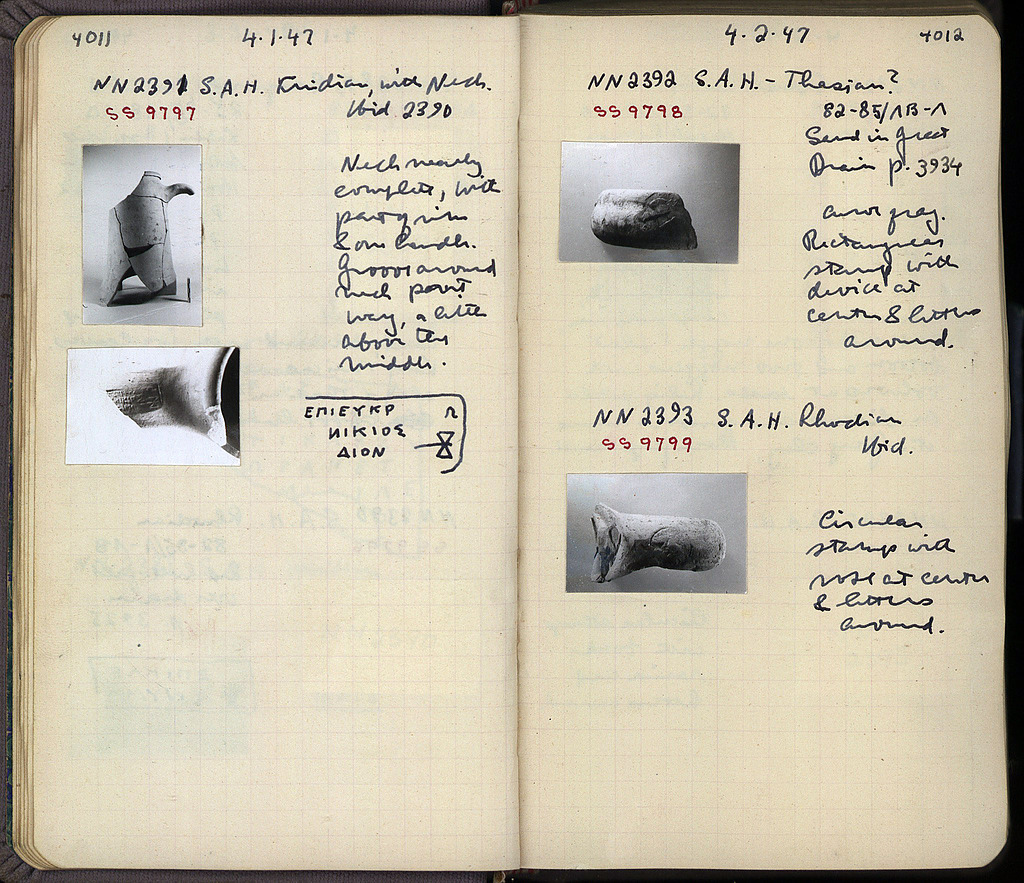 4011
4·1·47
NN2391 S.A.H. Knidian, with Neck.
SS 9797
Ibid. 2390
Neck nearly
complete, with
part of rim
& one handle.
Groove around
neck part
way, a little
above the
middle.
ΕΠΙΕΥΚΡ
ΝΙΚΙΟΣ
ΔΙΟΝ
4·2·47
4012
NN2392 S.A.H. - Thasian?
SS 9798
82-85/ΛB-Λ
Sand in Great
Drain p. 3934
Rectangular
stamp with
device at
center & letters
around.
NN2393 S.A.H. Rhodian
SS 9799
Ibid.
Circular
stamp with
rose at center
& letters
around.